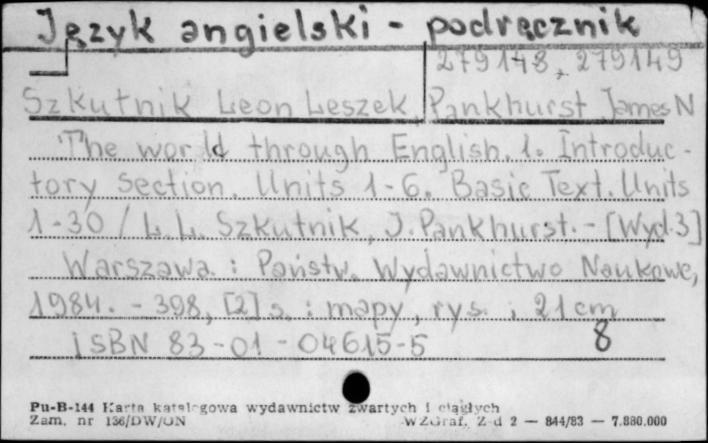 Język angielski - podręcznik
279148, 279149
Szkutnik Leon Leszek, Pankhurst James N
The world through English. 1. Introduc-
tory Section. Units 1-6. Basic Text. Units
1-30 / L. L. Szkutnik, J. Pankhurst. - [Wyd. 3]
Warszawa : Państw. Wydawnictwo Naukowe,
1984. - 398, [2] s. : mapy, rys. ; 21 cm
ISBN 83-01-04615-5 8
Pu-B-144 Karta katalogowa wydawnictw zwartych i ciągłych
Zam. nr 136/DW/UN WZGraf. Z-d 2 — 844/83 — 7.880.000